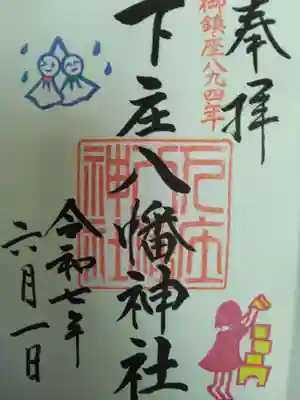 奉拝
御鎮座八九四年
下庄八幡神社
令和七年
六月一日
下庄
神社